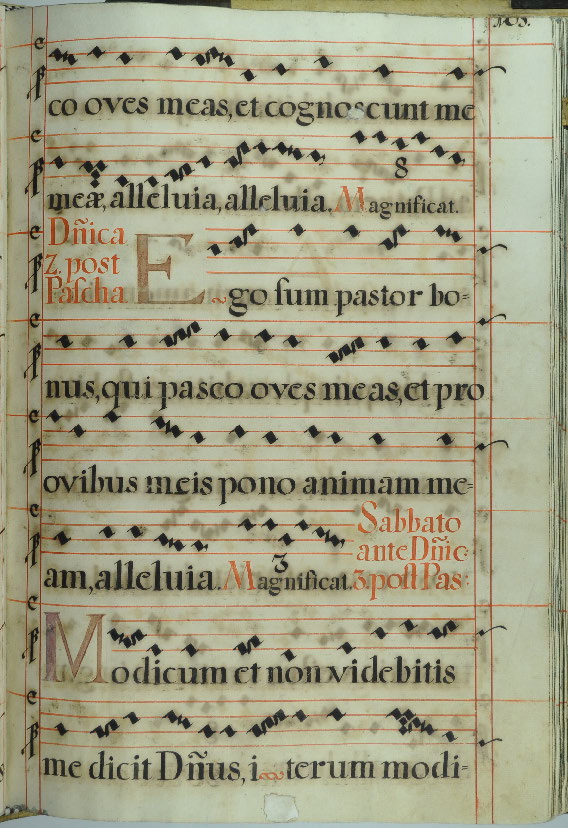 103.
co oves meas, et cognoscunt me
meæ, alleluia, alleluia. Magnificat. 8
Dñica
2. post
Pascha.
Ego sum pastor bo=
nus, qui pasco oves meas, et pro
ovibus meis pono animam me=
am, alleluia. Magnificat. 3
Sabbato
ante Dñic
3. post Pas:
Modicum et non videbitis
me dicit Dñus, iterum modi=